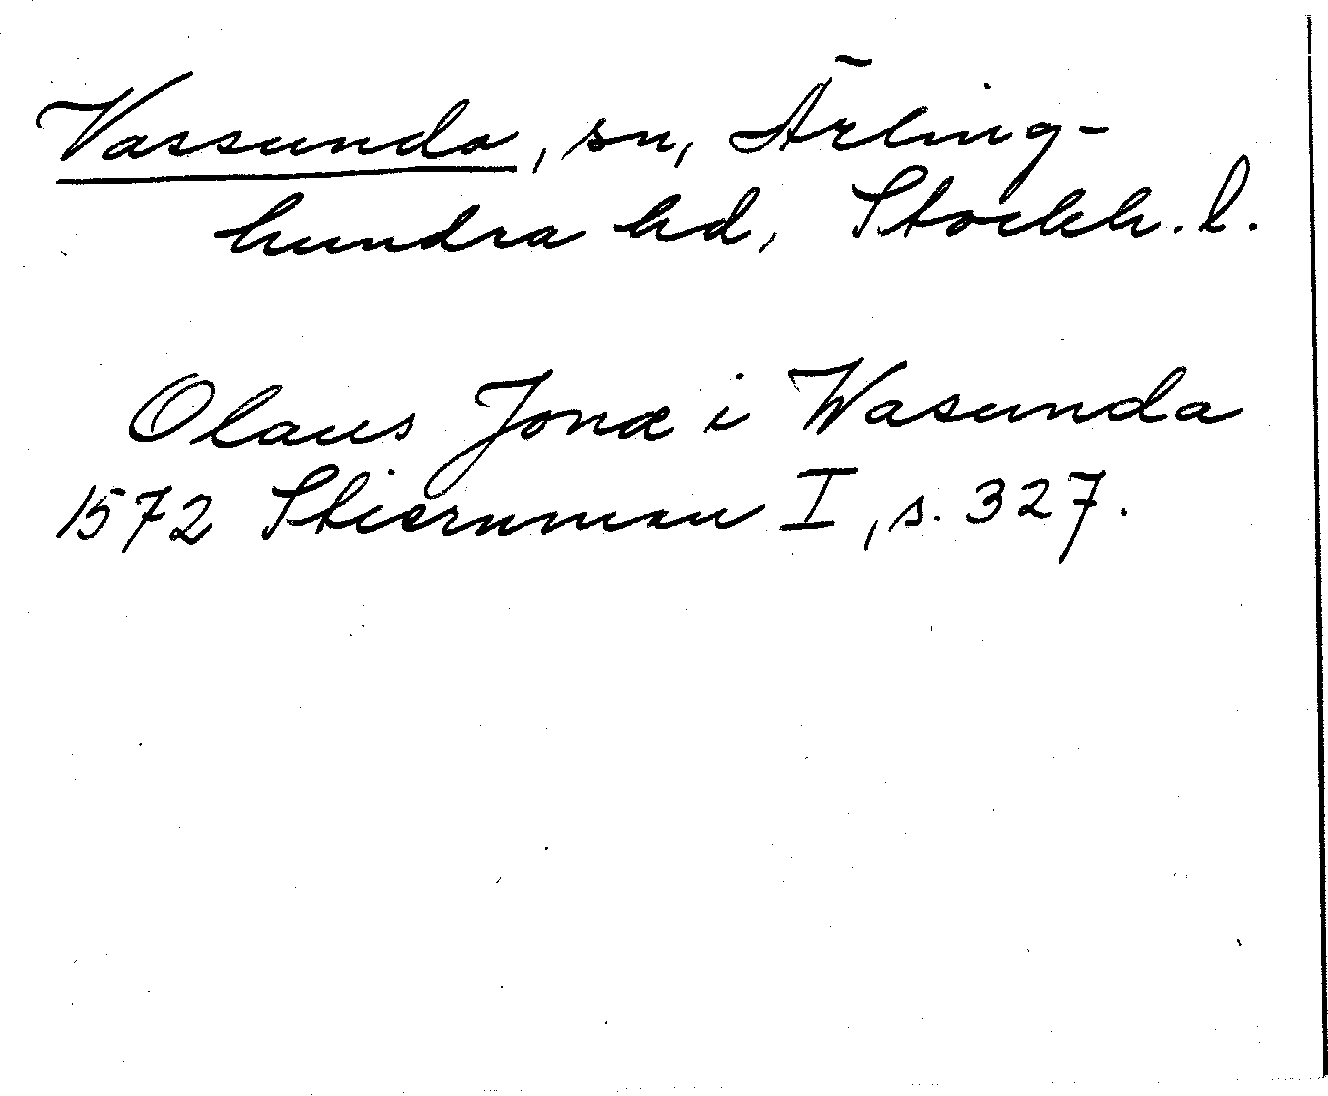 Vassunda, sn, Ärling-
hundra hd, Stockh. l.
Olaus Jonæ i Wasunda
1572 Stiernman I, s. 327.